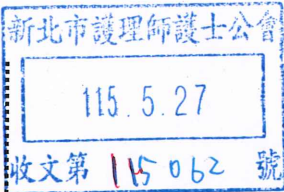 新北市護理師護士公會
115.5.27
收文第115062號